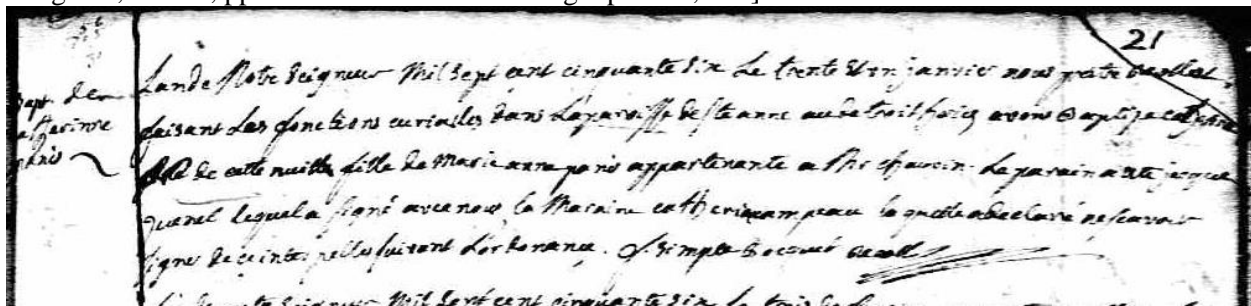 21
Bapt. de
Catherinne
panis
Lan de Notre Seigneur Mil Sept cent cinquante Six Le trente et un janvier nous pretre Recollect
faisant Les fonctions curialles dans La paroisse de Ste anne au detroit avons Baptisé catherine
née de cette nuitte fille de Marie anne panis appartenante a Mr chauvin. Le parain a ete jacque
lequel a signé avec nous la Maraine catherine campeau laquelle a declaré ne scavoir
signer de ce interpellé suivant L'ordonance. f. Simple Bocquet
Seigneur Mil Sept cent cinquante Six Le trois